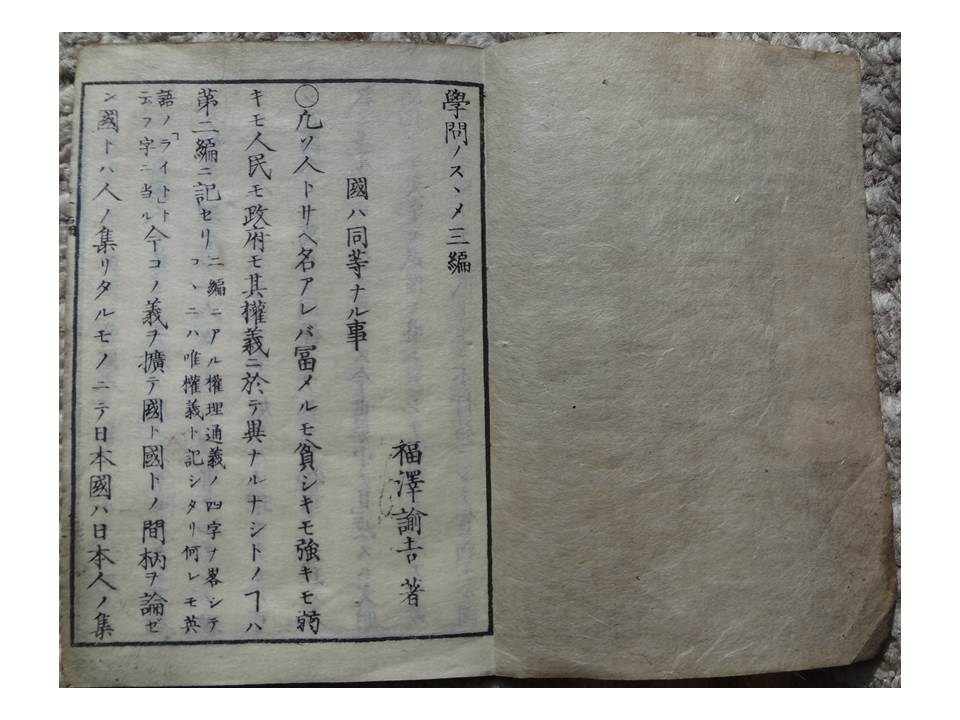 學問ノスヽメ三編
福澤諭吉 著
國ハ同等ナル事
〇凡ソ人トサヘ名アレバ冨メルモ貧シキモ強キモ弱
キモ人民モ政府モ其權義ニ於テ異ナルナシトノヿハ
第二編ニ記セリ
二編ニアル權理通義ノ四字ヲ畧シテ
コヽニハ唯權義ト記シタリ何レモ英
語ノ「ライト」ト
云フ字ニ当ル
今コノ義ヲ擴テ國ト國トノ間柄ヲ論ゼ
ン國トハ人ノ集リタルモノニテ日本國ハ日本人ノ集